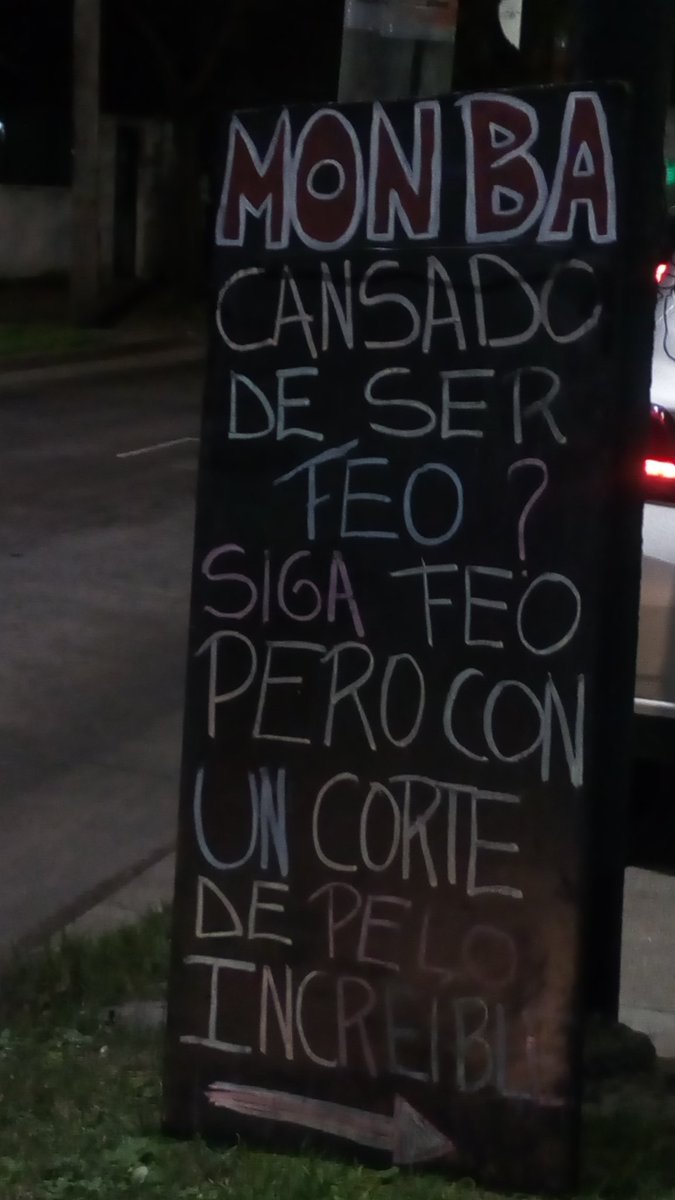 MONBA
CANSADO
DE SER
FEO?
SIGA FEO
PERO CON
UN CORTE
DE PELO
INCREIBL